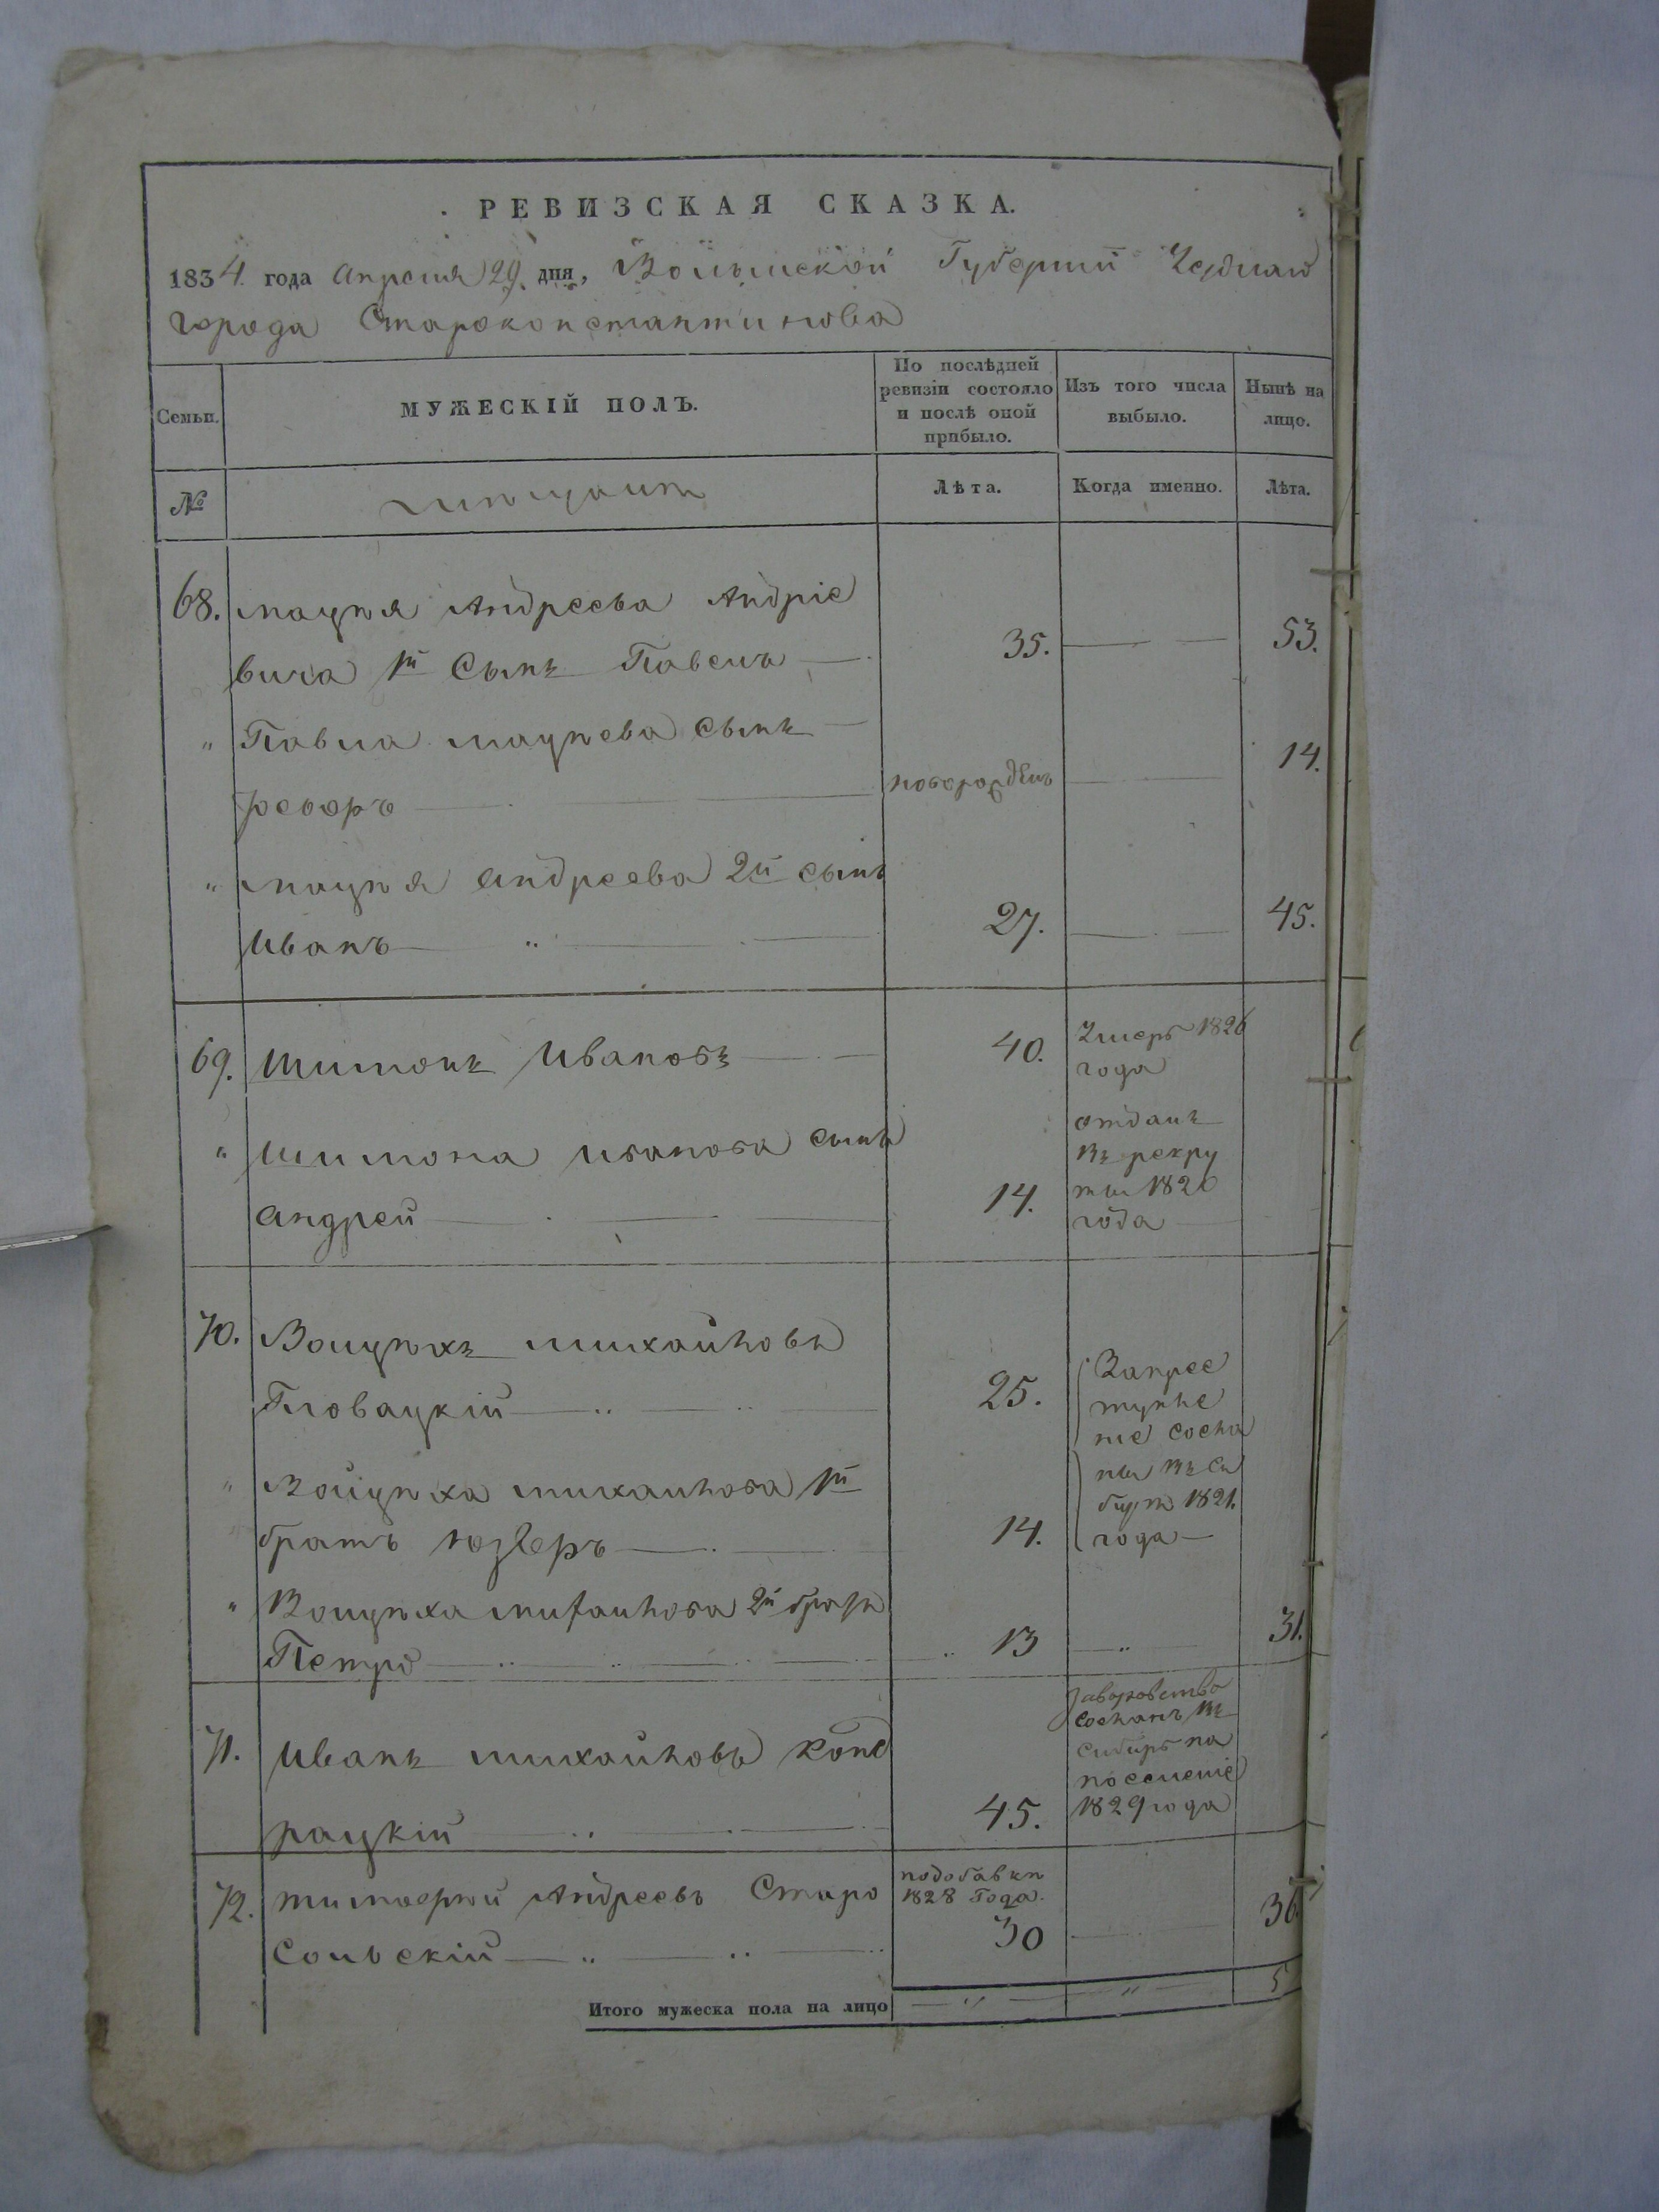 РЕВИЗСКАЯ СКАЗКА.
1834 года Апреля 29 дня, Волынской Губернии Уезднаго
города Староконстантинова
Семьи.
МУЖЕСКІЙ ПОЛЪ.
По послѣдней ревизіи состояло и послѣ оной прибыло.
Изъ того числа выбыло.
Нынѣ на лицо.
№
Лѣта.
Когда именно.
Лѣта.
68. Мацѣя Андреева Андрiе
вича 1й Сынъ Павелъ 35. 53.
" Павла Мацѣева Сынъ
Феѳоръ новорожденъ 14.
" Мацѣя Андреева 2й сынъ
Иванъ 27. 45.
69. Шимонъ Ивановъ 40. Умеръ 1826
года
" Шимона Иванова сынъ
Андрей 14.
отданъ
въ рекру
ты 1820
года
70. Войцѣхъ Михайловъ
Гловацкій 25.
" Войцѣха Михайлова 1й
братъ Юзеѳъ 14.
За прес
тупле
ніе сосла
ны въ Си
бирь 1821.
года
" Войцѣха Михайлова 2й братъ
Петро 13 31.
71. Иванъ Михайловъ Конд
рацкій 45.
За воровство
Сосланъ въ
Сибирь на
поселеніе
1829 года
72. Тимоѳей Андреевъ Старо
Сольскій
по добавкѣ
1828 Года.
30 36.
Итого мужеска пола на лицо 5